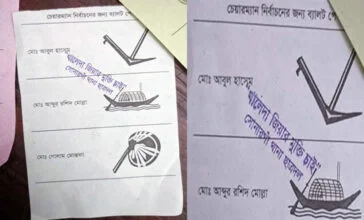 চেয়ারম্যান নির্বাচনের জন্য ব্যালট পে
মোঃ আবুল হাসেম
মোঃ আব্দুর রশিদ মোল্লা
মোঃ গোলাম মোস্তফা
খালেদা জিয়ার মুক্তি চাই"
থানা ছাত্রদল
চেয়ারম্যান নির্বাচনের জন্য ব্যালট
মোঃ আবুল হাসেম
খালেদা জিয়ার মুক্তি চাই"
থানা ছাত্রদল
মোঃ আব্দুর রশিদ মোল্লা